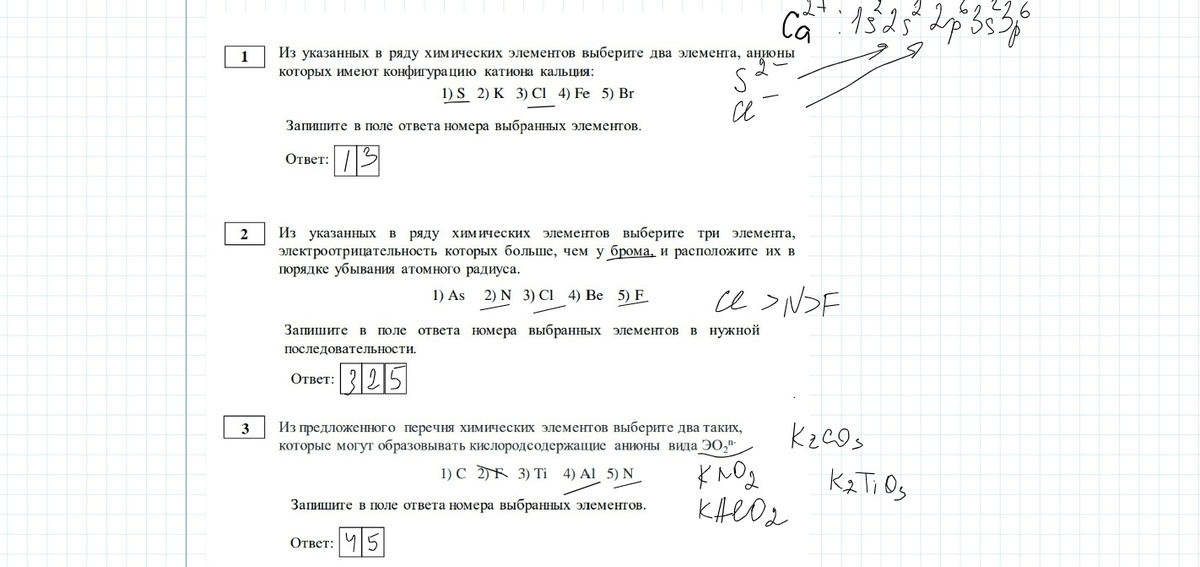 Ca²⁺ : 1s²2s²2p⁶3s²3p⁶
1
Из указанных в ряду химических элементов выберите два элемента, анионы
которых имеют конфигурацию катиона кальция:
S²⁻
1) S 2) K 3) Cl 4) Fe 5) Br
Cl⁻
Запишите в поле ответа номера выбранных элементов.
Ответ: 1 3
2
Из указанных в ряду химических элементов выберите три элемента,
электроотрицательность которых больше, чем у брома, и расположите их в
порядке убывания атомного радиуса.
1) As 2) N 3) Cl 4) Be 5) F
Cl >N>F
Запишите в поле ответа номера выбранных элементов в нужной
последовательности.
Ответ: 3 2 5
3
Из предложенного перечня химических элементов выберите два таких,
которые могут образовывать кислородсодержащие анионы вида ЭО₂ⁿ⁻
K2CO3
1) C 2) F 3) Ti 4) Al 5) N
KNO2
K2TiO3
Запишите в поле ответа номера выбранных элементов.
KAlO2
Ответ: 4 5